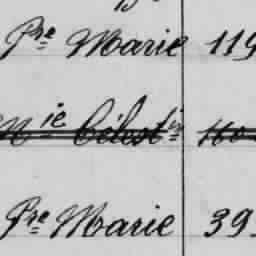 Pre Marie 119
Nie Célestin 160
Pre Marie 39